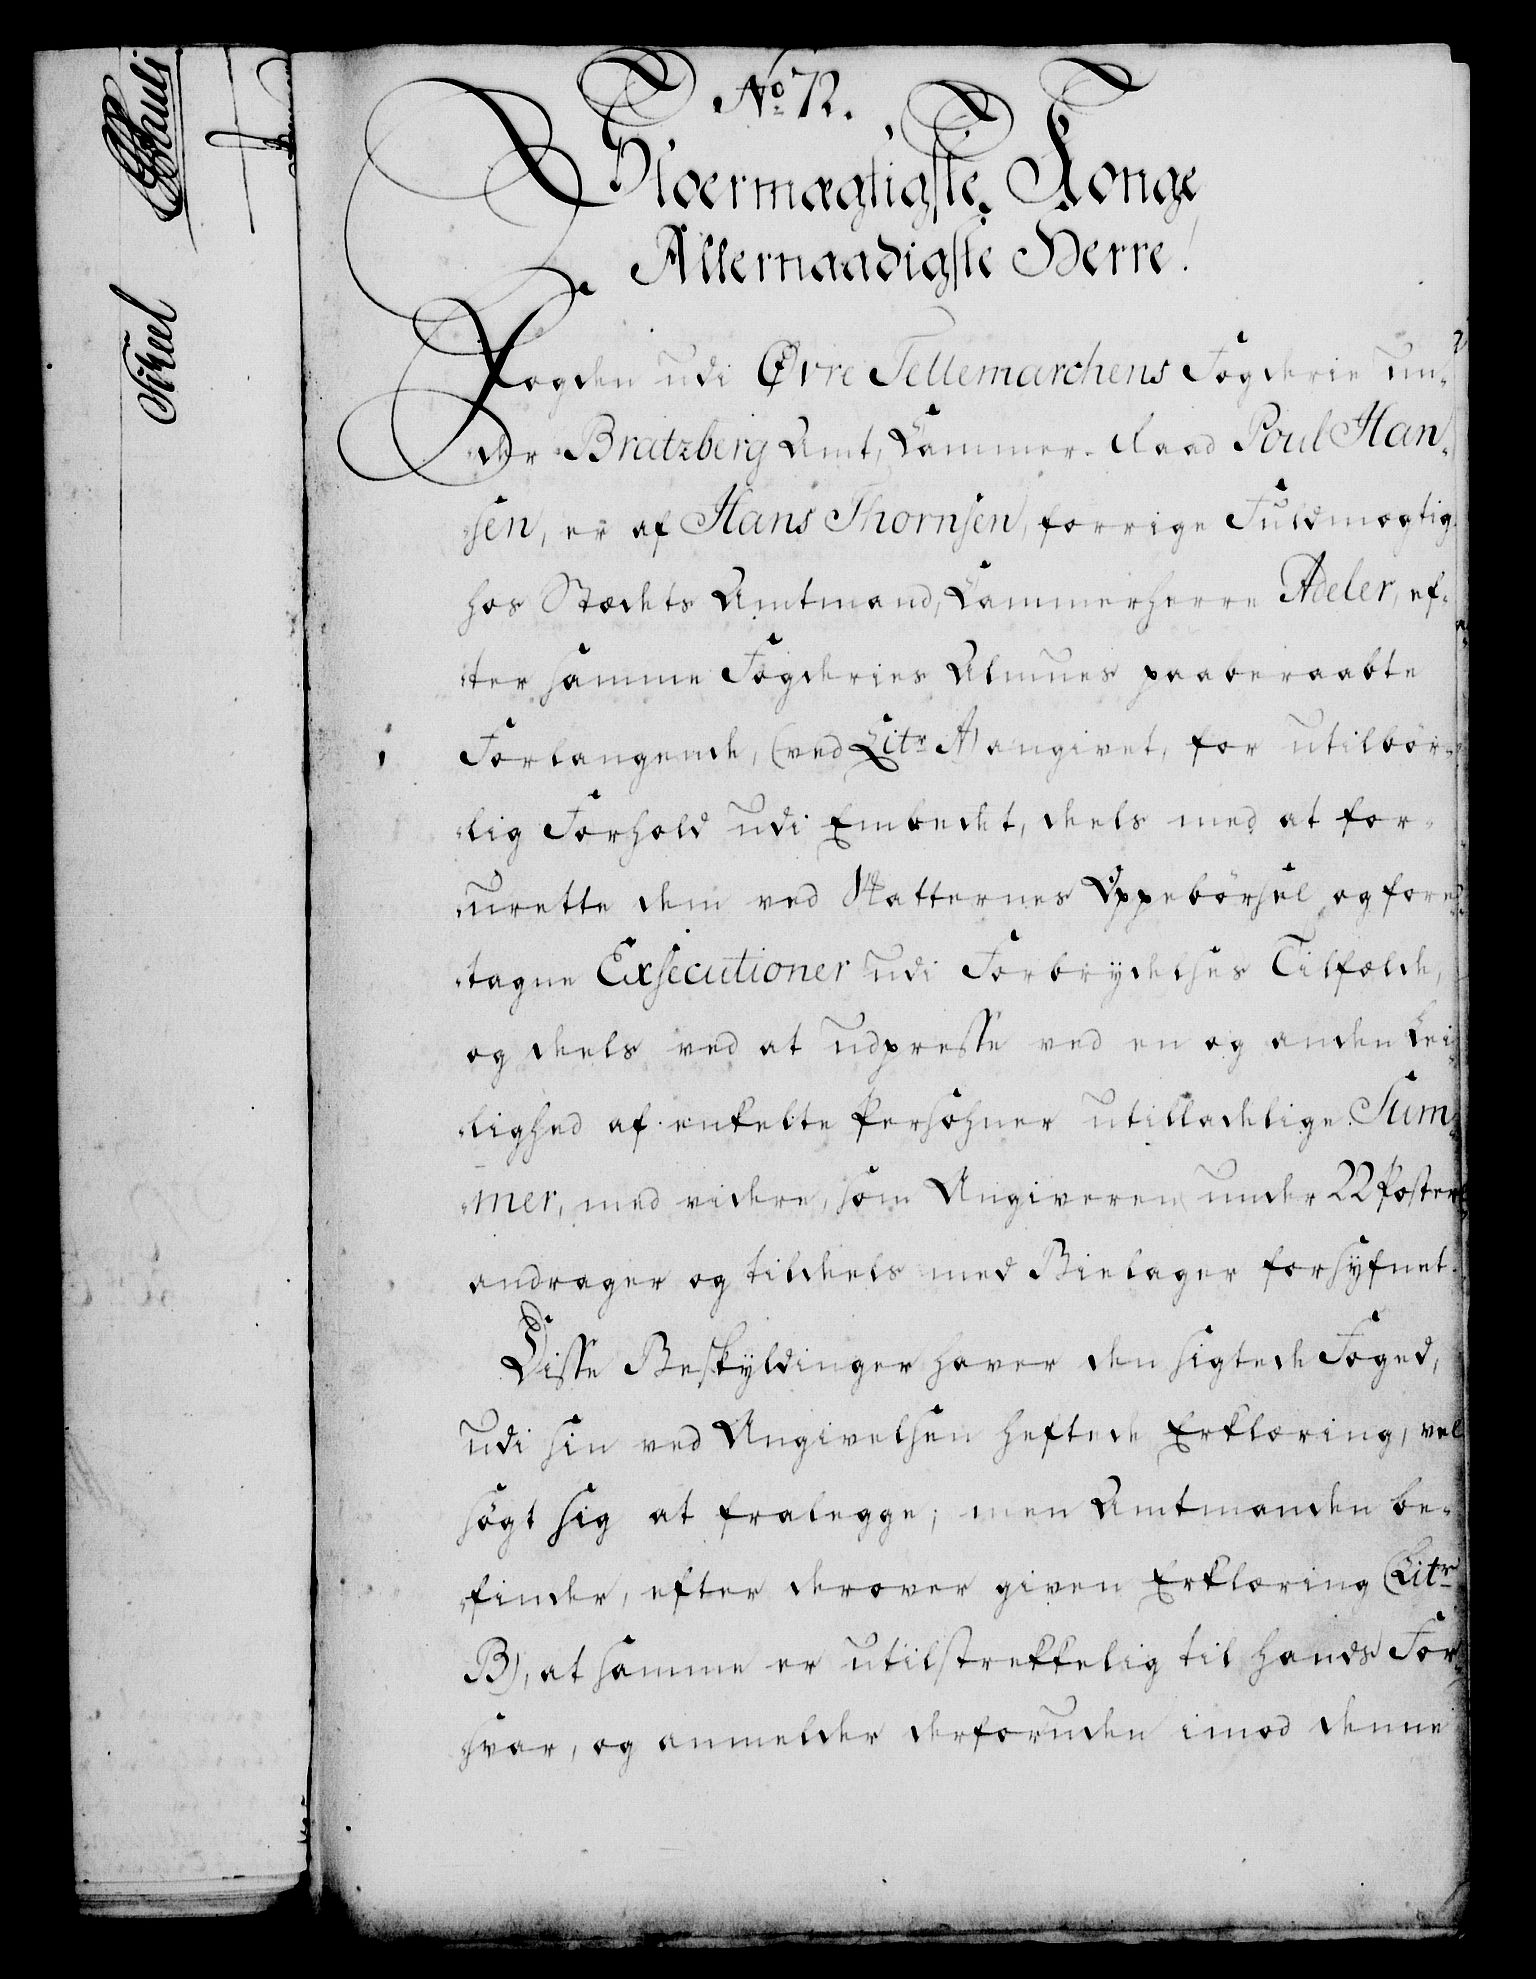 No 72.
Stoermægtigste Konge
Allernaadigste Herre!
Fogden udi Øvre Tellemarchens Fogderie un-
der Bratzberg Amt, Cammer-Raad Poul Han-
sen, er af Hans Thornsen, forrige Fuldmægtig
hos Stædets Amtmand, Cammerherre Adeler, ef-
ter samme Fogderies Almues paaberaabte
Forlangende, (ved Litr A) angivet, for utilbør-
lig Forhold udi Embedet, deels med at for-
urette dem ved Skatternes Oppebørsel og fore-
tagne Exsecutioner udi Forbrydelses Tilfælde,
og deels ved at udpresse ved en og anden Lei-
lighed af enkelte Persohner utilladelige Sum-
mer, med videre, som Angiveren under 22 Poster
andrager og tildeels med Bielager forsyfnet.
Disse Beskyldinger haver den sigtede Foged,
udi sin ved Angivelsen heftede Erklæring, vel
søgt sig at fralegge; men Amtmanden be-
finder, efter derover given Erklæring (Litr
B), at samme er utilstrekkelig til hands For-
svar, og anmelder derforuden imod denne